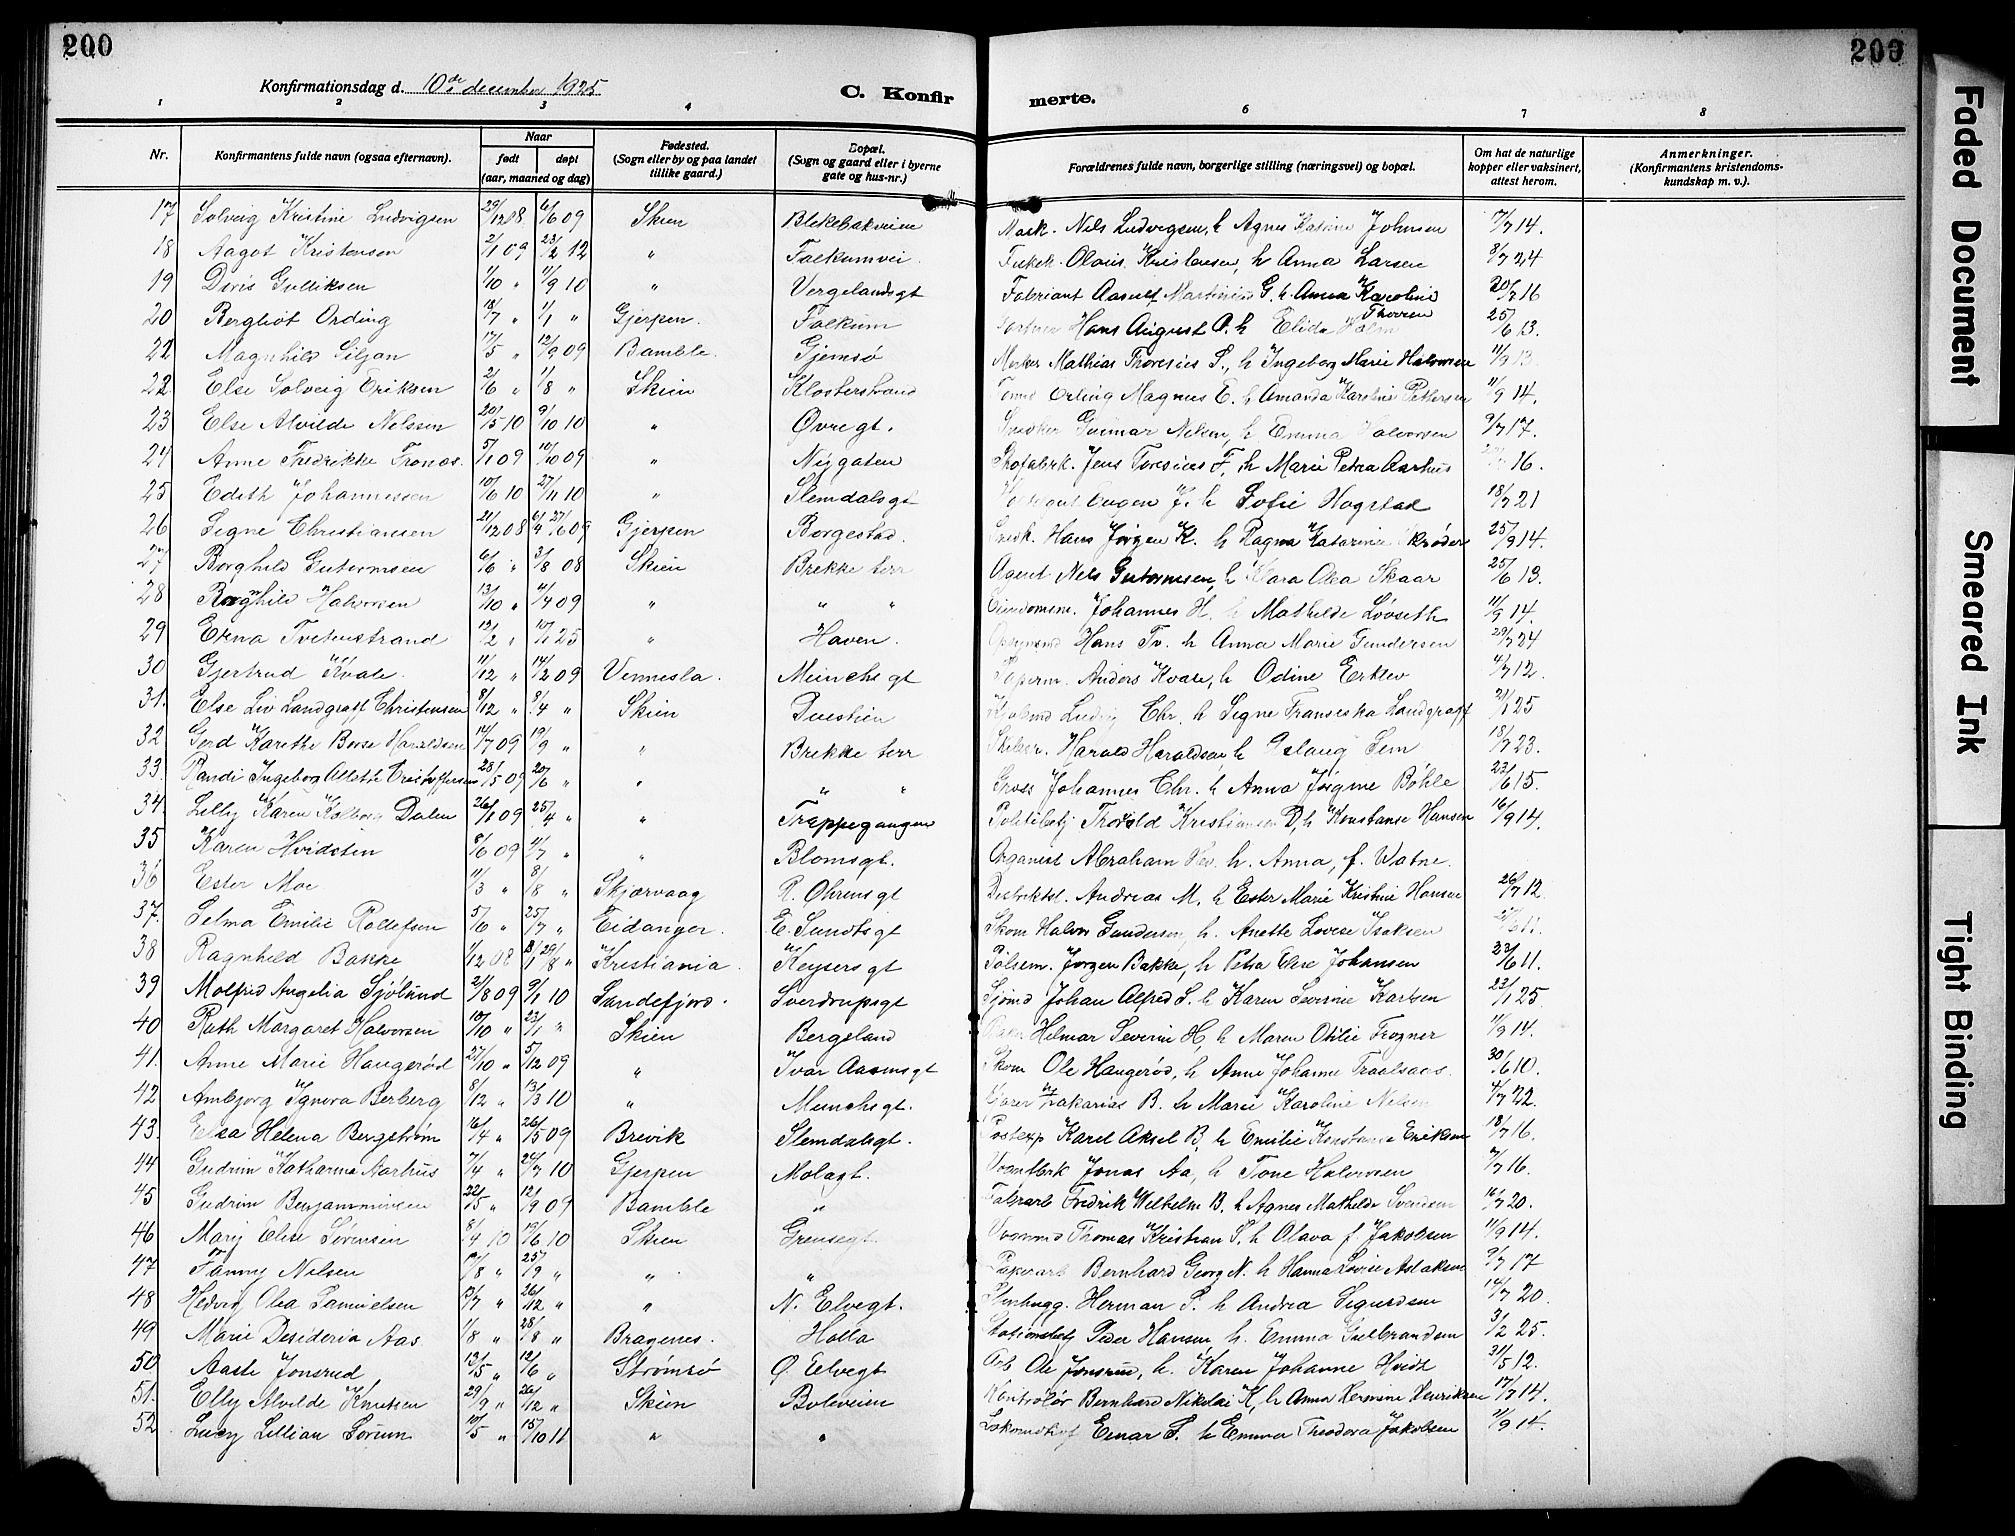 200
200
Konfirmationsdag d. 10de december 1925
C. Konfir
merte.
1 2 3 4 6 7 8
Nr.
Konfirmantens fulde navn (ogsaa efternavn).
Naar
født døpt
(aar, maaned og dag)
Fødested.
(Sogn eller by og paa landet
tillike gaard.)
Bopæl.
(Sogn og gaard eller i byerne
gate og hus-nr.)
Forældrenes fulde navn, borgerlige stilling (næringsvei) og bopæl.
Om hat de naturlige
kopper eller vaksinert,
attest herom.
Anmerkninger.
(Konfirmantens kristendoms-
kundskap m. v.).
17 Solveig Kristine Ludvigsen 29/12 08 6/6 09 Skien Blekebakveien Mask. Nils Ludvigsen, h Agnes Katrine Johnsen 7/7 14.
18 Aagot Kristensen 2/1 09 23/2 12 " Falkumvei Olaus Kristensen, h Anna Larsen 8/7 24
19 Doris Gulliksen 1/10 " 11/9 10 " Vergelandsgt Fabriant Aasulf Martinius G. h. Anna Karoline Thoresen 20/7 16
20 Bergliot Ording 18/7 " 1/1 " Gjerpen. Falkum Hans August O. h Elida Holm 25/6 13.
22 Magnhild Siljan 17/5 " 12/9 09 Bamble. Gjemsø Mathias Thoresius S., h Ingeborg Marie Halvorsen 11/9 13
22 Else Solveig Eriksen 2/6 " 1/8 " Skien Klosterstrand Tomd Erling Magnus E. h Amanda Karoline Pettersen 11/9 14.
23 Else Alvilde Nelssen 20/5 10 9/10 10 " Øvregt. Snedker Gunnar Nelsen, h Emma Halvorsen 9/7 17.
24 Anne Fredrikke Fronæs 5/1 09 10/10 09 " Nygaten Skofabrk. Jens Toresius F. h Marie Petra Aarhus 16.
25 Edith Johannessen 10/6 10 27/11 10 " Slemdalsgt Eugen J. h Sofie Hogstad 18/7 21
26 Signe Christiansen 21/12 08 6/4 27/6 09 Gjerpen Borgestad. Snedk. Hans Jørgen K. h Ragna Katarine Skrøder 25/9 14.
27 Borghild Gutormsen 6/6 " 3/8 08 Skien Brekke terr Agent Nels Gutormsen, h Klara Olea Skaar 25/6 13.
28 Ragnhild Halvorsen 13/10 " 4/7 09 " " " Eiendomsm. Johannes H. h Mathilde Løvseth 11/9 14.
29 Erna Tvetenstrand 12/2 " 10/1 25 " Haven. Hans Tv. h Anna Marie Gundersen 29/7 24
30 Gjertrud Kvale. 11/12 " 14/2 09 Vennesla. Munchsgt Paperm. Anders Kvale, h Odine Erklev 4/7 12.
31. Else Liv Landgraff Christensen 8/12 " 8/4 " Skien Duestien Ludvig Chr. h Signe Franseska Landgraff 21/1 25
32 Gerd Karethe Borse Haraldsen 14/7 09 19/9 " " Brekke terr Harald Haraldsen, h Aslaug Sem 18/7 23.
33 Randi Ingeborg Alleth Cristoffersen 28/5 09 20/6 " " " " Gross Johannes Chr. h Anna Jørgine Bøhle 23/6 15.
34. Lilly Karen Kolberg Dalen 26/1 09 25/4 " " Trappegangen Politibetj Thorvald Kristiansen D, h Konstanse Hansen 16/9 14.
35 Karen Hvidsten 8/6 09 4/7 " " Blomsgt. Organist Abraham Hv. h. Anna, f. Watne.
36 Ester Moe 11/3 " 8/8 " Skjærvaag R. Ohrensgt Distriktsl. Andreas M. h Ester Marie Kristine Hansen 26/7 12.
37. Selma Emilie Rollefsen 5/6 " 25/7 " Eidanger. E. Sundtsgt Skom Halvor Gundersen, h Anette Lovise Isaksen 6 11.
38 Ragnhild Bakke 1/12 08 8/1 29/8 " Kristiania. Keysersgt Pølsem. Jørgen Bakke, h Petra Else Johansen 23/6 11.
39 Molfrid Angelia Sjølund 2/8 09 9/1 10 Sandefjord. Sverdrupsgt Sjømd Johan Alfred S. h Karen Severine Karlsen 23/1 25.
40 Ruth Margaret Halvorsen 10/10 " 23/1 " Skien Bergeland Hilmar Severin H, h Maren Otilie Frogner 11/9 14.
41. Anne Marie Haugerød 27/10 " 5/12 09 " Ivar Aasensgt Skom Ole Haugerød, h Anne Johanne Traalsaas. 30/6 10.
42 Ambjørg Ignora Berberg 8/12 " 13/3 10 " Munchsgt. Zakarias B. h Marie Karoline Nilsen 4/7 22.
43. Elsa Helena Bergstrøm 6/4 " 26/5 09 Brevik Slemdalsgt. Postexp Karel Aksel B. h Emilie Konstanse Eriksen 18/7 16.
44 Gudrun Katharina Aarhus 7/4 " 24/7 10 Gjerpen Molagt. Vognfbrk Jonas Aa, h Tone Halvorsen 7/7 16.
45 Gudrun Benjaminsen 22/5 " 12/9 09 Bamble " Fabrarb Fredrik Wilhelm B. h Agnes Mathilde Svendsen 16/7 20.
46 Mary Else Sørensen 8/4 10 19/6 10 Skien Grensegt Vognmd Thomas Kristian S. h Olava f Jakobsen 11/9 14.
47 Fanny Nilsen 17/8 " 25/9 " " " Papirarb Bernhard Georg N. h Hanna Lovise Aslaksen 9/7 17
48 Hedvig Olea Samuelsen 13/7 " 26/12 " " N. Elvegt. Stenhugg. Herman S. h Andrea Sigurdsen 14/7 20.
49 Marie Desideria Aas. 1/8 " 28/8 " Bragenes. Holla Stationsbetj Peder Hansen, h. Emma Gulbrandsen 3/2 25.
50 Aaste Jonsrud 13/5 " 12/6 " Strømsø Ø. Elvegt Arb Ole Jonsrud, h. Karen Johanne Hvidt 31/5 12.
51. Elly Alvilde Knutsen 29/9 " 26/12 " Skien Boleveien Kontrolør Bernhard Nikolai K, h Anna Hermine Henriksen 17/7 14.
52 Lucy Lillian Sørum 10/5 " 15/10 11 " " Einar S. h Emma Theodora Jakobsen 11/9 14.
Faded Document
Smeared Ink
Tight Binding